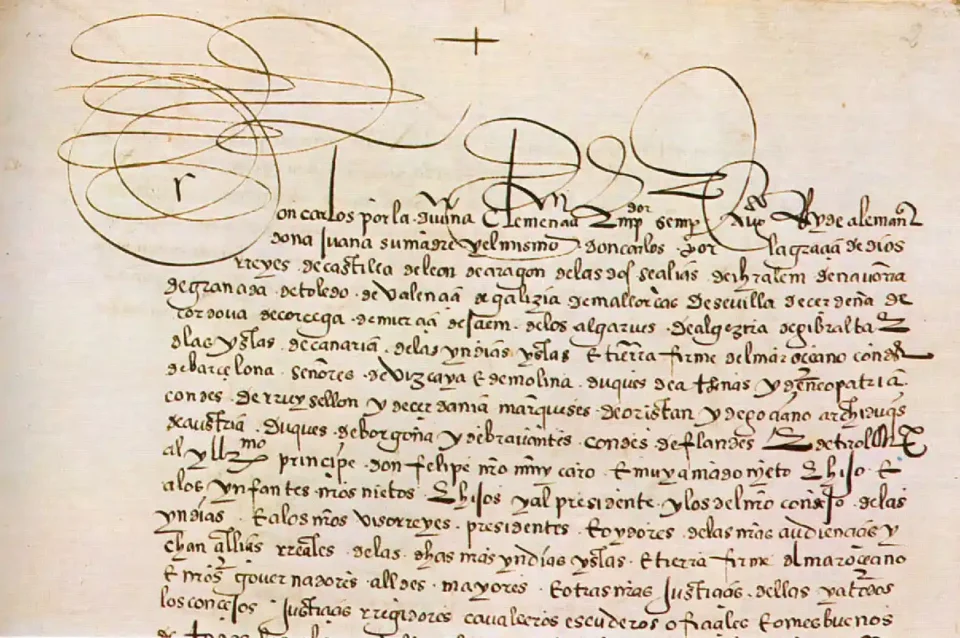 on carlos por la divina Clemencia Emp dor semp Augo Rey de aleman
dona Juana su madre y el mismo don carlos por la gracia de dios
rreyes de castilla de leon de aragon de las dos secilias de ihrlem de navarra
de granada de toledo de valencia de galizia de mallorcas de sevilla de cerdeña de
cordova de corcega de murcia de Jaen de los algarves de algezira de gibraltar
de las yslas de canaria de las yndias yslas E tierra firme del mar oceano condes
de barcelona señores de vizcaya E de molina duques de athenas y de neopatria
condes de rruysellon y de cerdania marqueses de oristan y de gociano archiduqs
de austria duques de borgoña y de bravante condes de flandes E de tirol
al yllmo principe don felipe nro muy caro E muy amado nieto E hijo E
a los ynfantes nros nietos E hijos y al presidente y los del nro consejo de las
yndias E a los nros visorreyes presidentes E oydores de las nras audiencias y
chancillias rreales de las dhas nras yndias yslas E tierra firme del mar oceano
E nros governadores alldes mayores E otras nras Justicias dellas y a todos
los concejos Justicias rregidores cavalleros escuderos oficiales E omes buenos
de